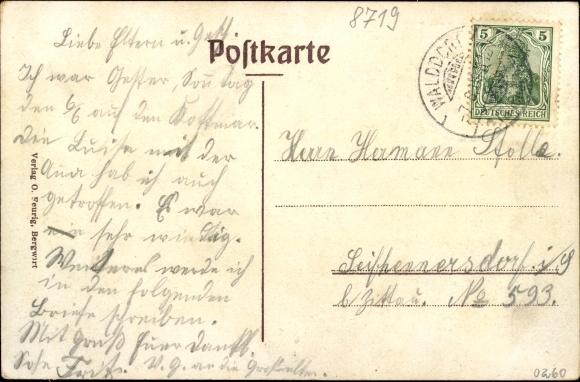 8719
Postkarte
Liebe Eltern u. Gesch.
Ich war Gester, Sonntag
den 6/6 auf den Kottmar.
Die Luise mit der
Ana hab ich auch
getroffen. Es war
ein sehr windig.
Weiteres werde ich
in den folgenden
Briefe schreiben.
Mit Gruß Euer Dankb.
Sohn Fritz. V. G. an die Großeltern.
Verlag O. Seurig, Bergwirt
WALDDORF
5 5
DEUTSCHES REICH
Herrn Hermann Stolle.
Seifhennersdorf i/S
b Zittau. No 593.
0260